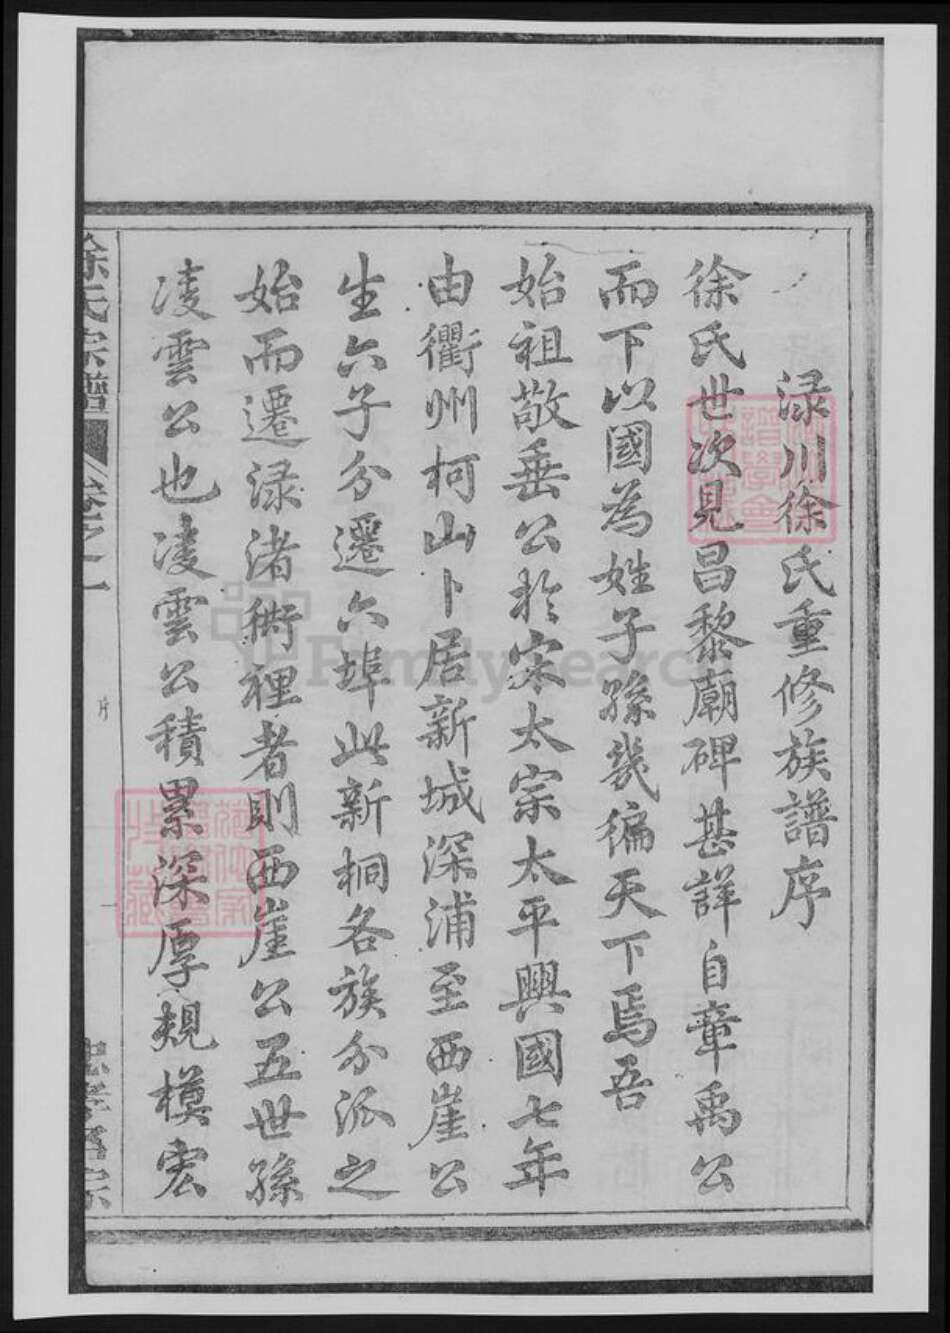 渌川徐氏重修族譜序
徐氏世次見昌黎廟碑甚詳自章禹公
而下以國為姓子孫幾徧天下焉吾
始祖敬垂公於宋太宗太平興國七年
由衢州柯山卜居新城深浦至西崖公
生六子分遷六埠此新桐各族分派之
始而遷渌渚衕裡者則西崖公五世孫
凌雲公也凌雲公積累深厚規模宏
徐氏宗譜 卷之一
FamilySearch